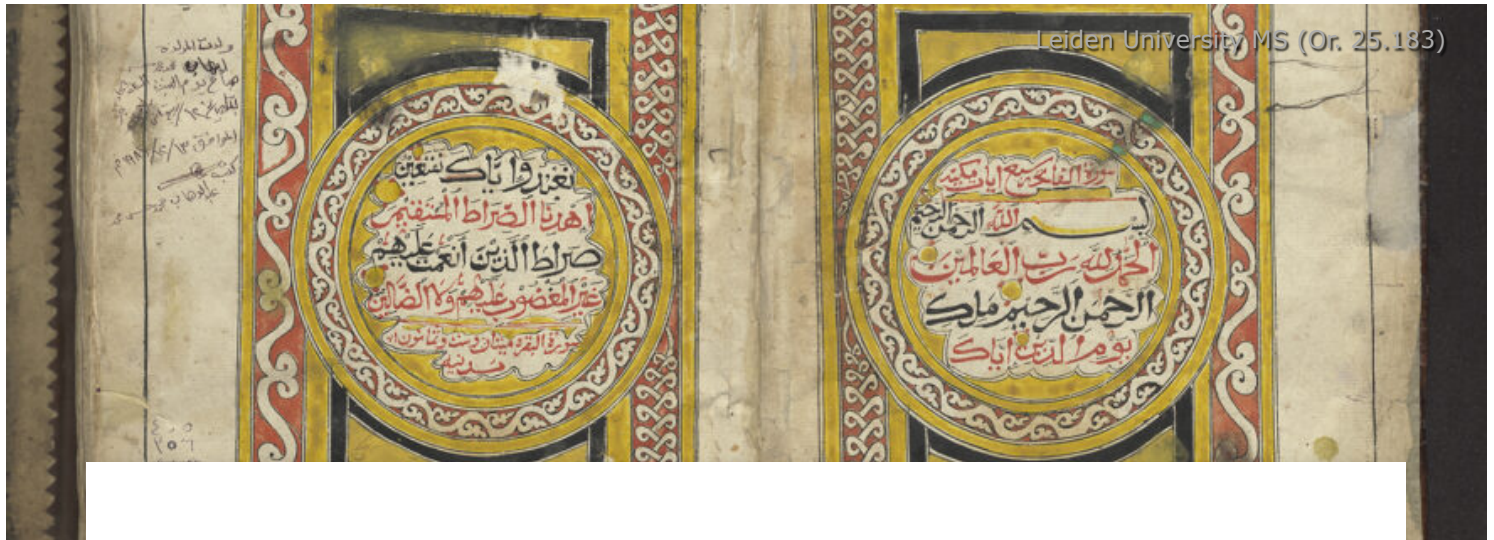 Leiden University MS (Or. 25.183)
سورة الفاتحة سبع ايات مكية
بسم الله الرحمن الرحيم
الحمد لله رب العالمين
الرحمن الرحيم ملك
يوم الدين اياك
نعبد واياك نستعين
اهدنا الصراط المستقيم
صراط الذين انعمت عليهم
غير المغضوب عليهم ولا الضالين
سورة البقره ميتان وست وثمانون اية
مدنيه